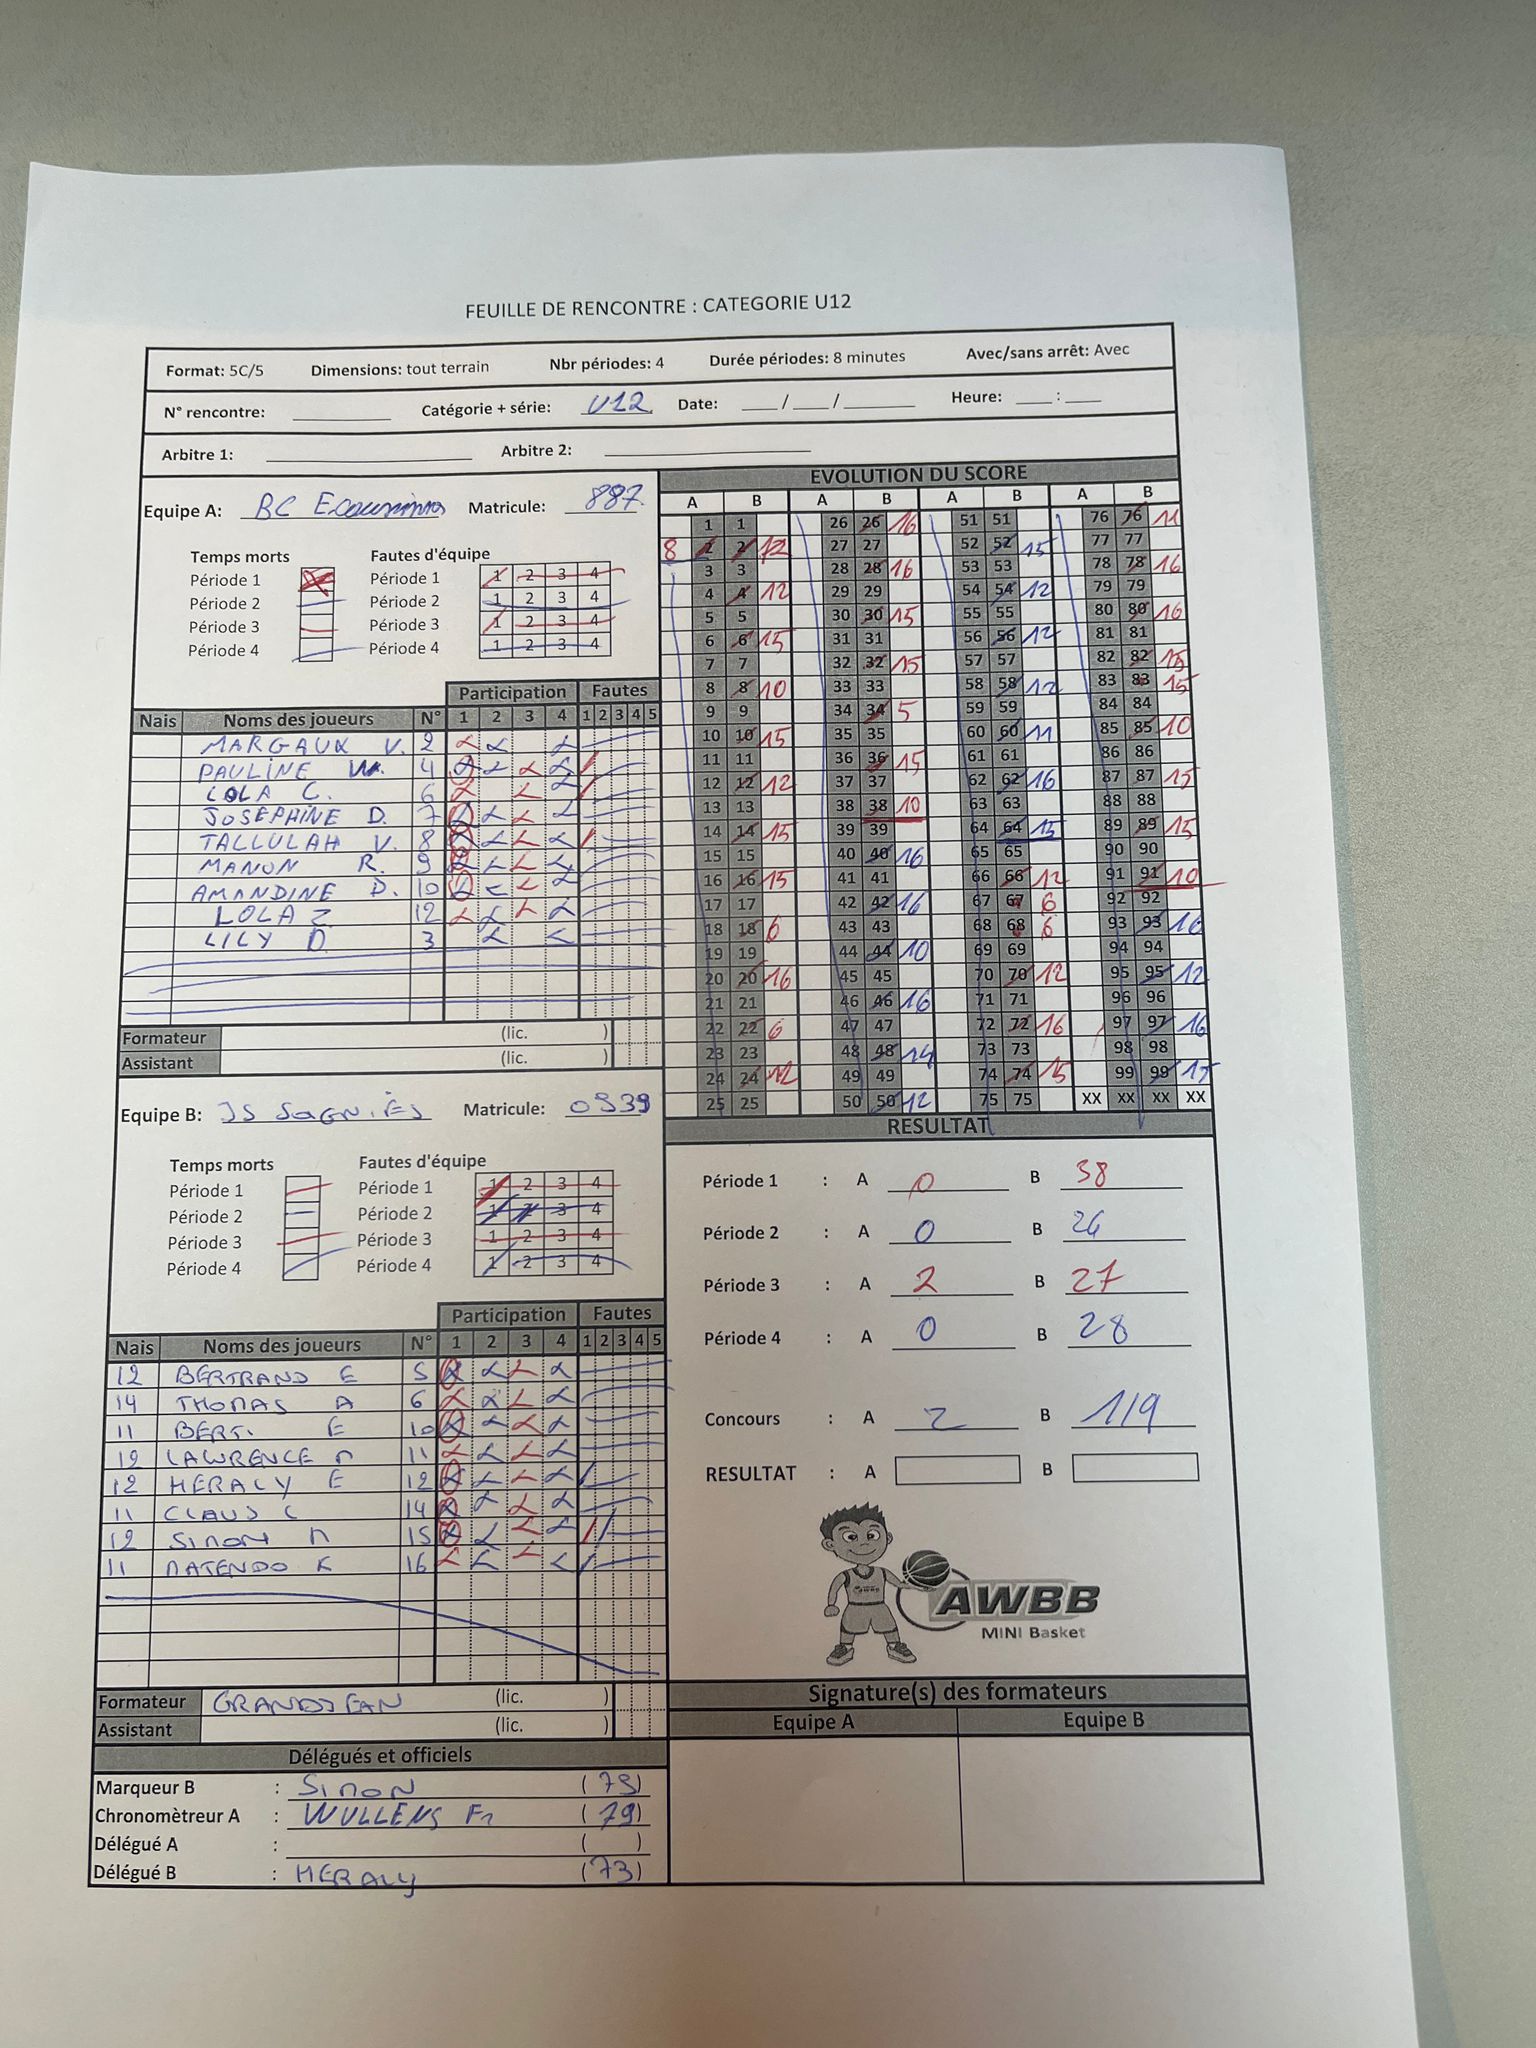 FEUILLE DE RENCONTRE : CATEGORIE U12
Format: 5C/5 Dimensions: tout terrain Nbr périodes: 4 Durée périodes: 8 minutes Avec/sans arrêt: Avec
N° rencontre: Catégorie + série: U12 Date: / / Heure: :
Arbitre 1: Arbitre 2:
Equipe A: BC Matricule: 887
Temps morts Fautes d'équipe
Période 1 Période 1 1 2 3 4
Période 2 Période 2 1 2 3 4
Période 3 Période 3 1 2 3 4
Période 4 Période 4 1 2 3 4
Participation Fautes
Nais Noms des joueurs N° 1 2 3 4 1 2 3 4 5
MARGAUX V. 2
PAULINE W. 4
LOLA C. 6
JOSEPHINE D. 7
TALLULAH V. 8
MANON R. 9
AMANDINE D. 10
LOLA Z 12
LILY D 3
Formateur (lic. )
Assistant (lic. )
Equipe B: JS Matricule: 0939
Temps morts Fautes d'équipe
Période 1 Période 1 1 2 3 4
Période 2 Période 2 1 2 3 4
Période 3 Période 3 1 2 3 4
Période 4 Période 4 1 2 3 4
Participation Fautes
Nais Noms des joueurs N° 1 2 3 4 1 2 3 4 5
12 BERTRAND E 5
14 THOMAS A 6
11 BERT. E 10
12 LAWRENCE M 11
12 HERALY E 12
11 CLAUS C 14
12 SIMON M 15
11 MATENDO K 16
Formateur GRANDJEAN (lic. )
Assistant (lic. )
Délégués et officiels
Marqueur B : SIMON (79)
Chronomètreur A : WULLENS Fr (79)
Délégué A : ( )
Délégué B : HERALY (73)
EVOLUTION DU SCORE
A B A B A B A B
1 1 26 26 16 51 51 76 76 11
8 2 2 12 27 27 52 52 15 77 77
3 3 28 28 16 53 53 78 78 16
4 4 12 29 29 54 54 12 79 79
5 5 30 30 15 55 55 80 80 16
6 6 15 31 31 56 56 12 81 81
7 7 32 32 15 57 57 82 82 15
8 8 10 33 33 58 58 12 83 83 15
9 9 34 34 5 59 59 84 84
10 10 15 35 35 60 60 11 85 85 10
11 11 36 36 15 61 61 86 86
12 12 12 37 37 62 62 16 87 87 15
13 13 38 38 10 63 63 88 88
14 14 15 39 39 64 64 15 89 89 15
15 15 40 40 16 65 65 90 90
16 16 15 41 41 66 66 12 91 91 10
17 17 42 42 16 67 67 6 92 92
18 18 6 43 43 68 68 6 93 93 16
19 19 44 44 10 69 69 94 94
20 20 16 45 45 70 70 12 95 95 12
21 21 46 46 16 71 71 96 96
22 22 6 47 47 72 72 16 97 97 16
23 23 48 48 14 73 73 98 98
24 24 12 49 49 74 74 15 99 99 15
25 25 50 50 12 75 75 XX XX XX XX
RESULTAT
Période 1 : A 0 B 38
Période 2 : A 0 B 26
Période 3 : A 2 B 27
Période 4 : A 0 B 28
Concours : A 2 B 119
RESULTAT : A B
AWBB
MINI Basket
Signature(s) des formateurs
Equipe A Equipe B